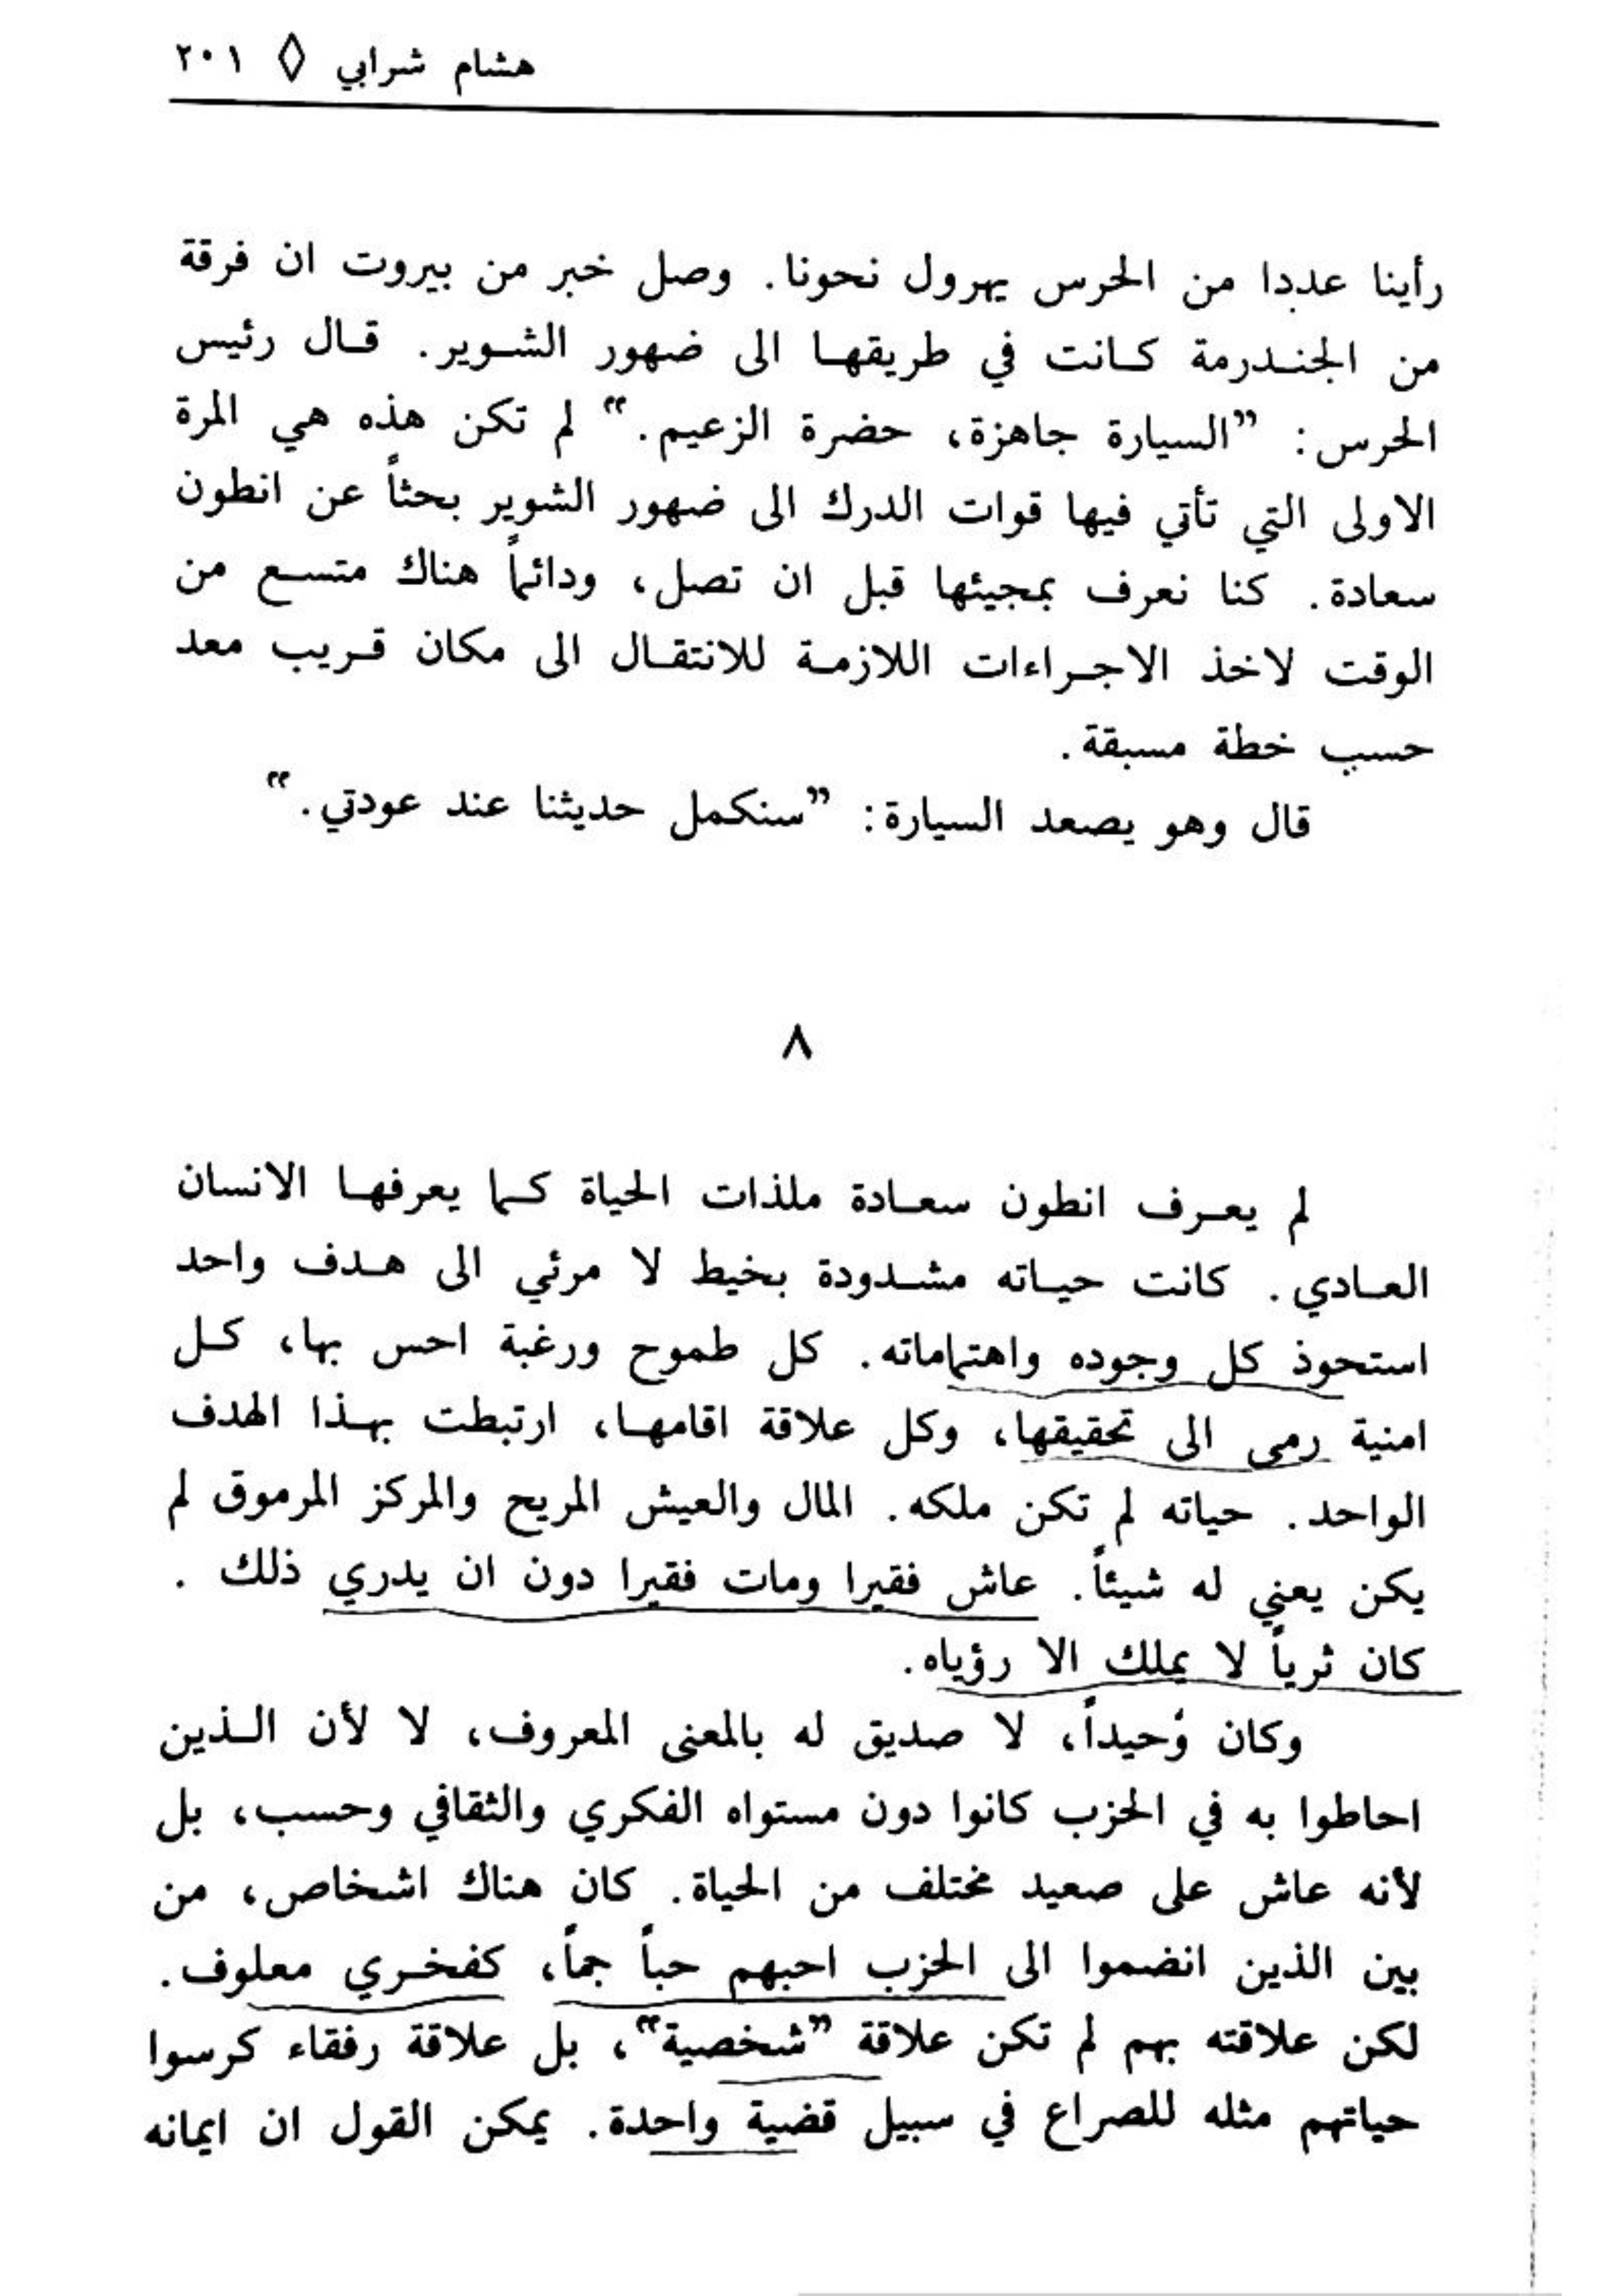 هشام شرابي ◊ ٢٠١
رأينا عددا من الحرس يهرول نحونا. وصل خبر من بيروت ان فرقة
من الجندرمة كانت في طريقها الى ضهور الشوير. قال رئيس
الحرس: ”السيارة جاهزة، حضرة الزعيم.“ لم تكن هذه هي المرة
الاولى التي تأتي فيها قوات الدرك الى ضهور الشوير بحثاً عن انطون
سعادة. كنا نعرف بمجيئها قبل ان تصل، ودائماً هناك متسع من
الوقت لاخذ الاجراءات اللازمة للانتقال الى مكان قريب معد
حسب خطة مسبقة.
قال وهو يصعد السيارة: ”سنكمل حديثنا عند عودتي.“
٨
لم يعرف انطون سعادة ملذات الحياة كما يعرفها الانسان
العادي. كانت حياته مشدودة بخيط لا مرئي الى هدف واحد
استحوذ كل وجوده واهتماماته. كل طموح ورغبة احس بها، كل
امنية رمى الى تحقيقها، وكل علاقة اقامها، ارتبطت بهذا الهدف
الواحد. حياته لم تكن ملكه. المال والعيش المريح والمركز المرموق لم
يكن يعني له شيئاً. عاش فقيرا ومات فقيرا دون ان يدري ذلك.
كان ثرياً لا يملك الا رؤياه.
وكان وُحيداً، لا صديق له بالمعنى المعروف، لا لأن الذين
احاطوا به في الحزب كانوا دون مستواه الفكري والثقافي وحسب، بل
لأنه عاش على صعيد مختلف من الحياة. كان هناك اشخاص، من
بين الذين انضموا الى الحزب احبهم حباً جماً، كفخري معلوف.
لكن علاقته بهم لم تكن علاقة ”شخصية“، بل علاقة رفقاء كرسوا
حياتهم مثله للصراع في سبيل قضية واحدة. يمكن القول ان ايمانه